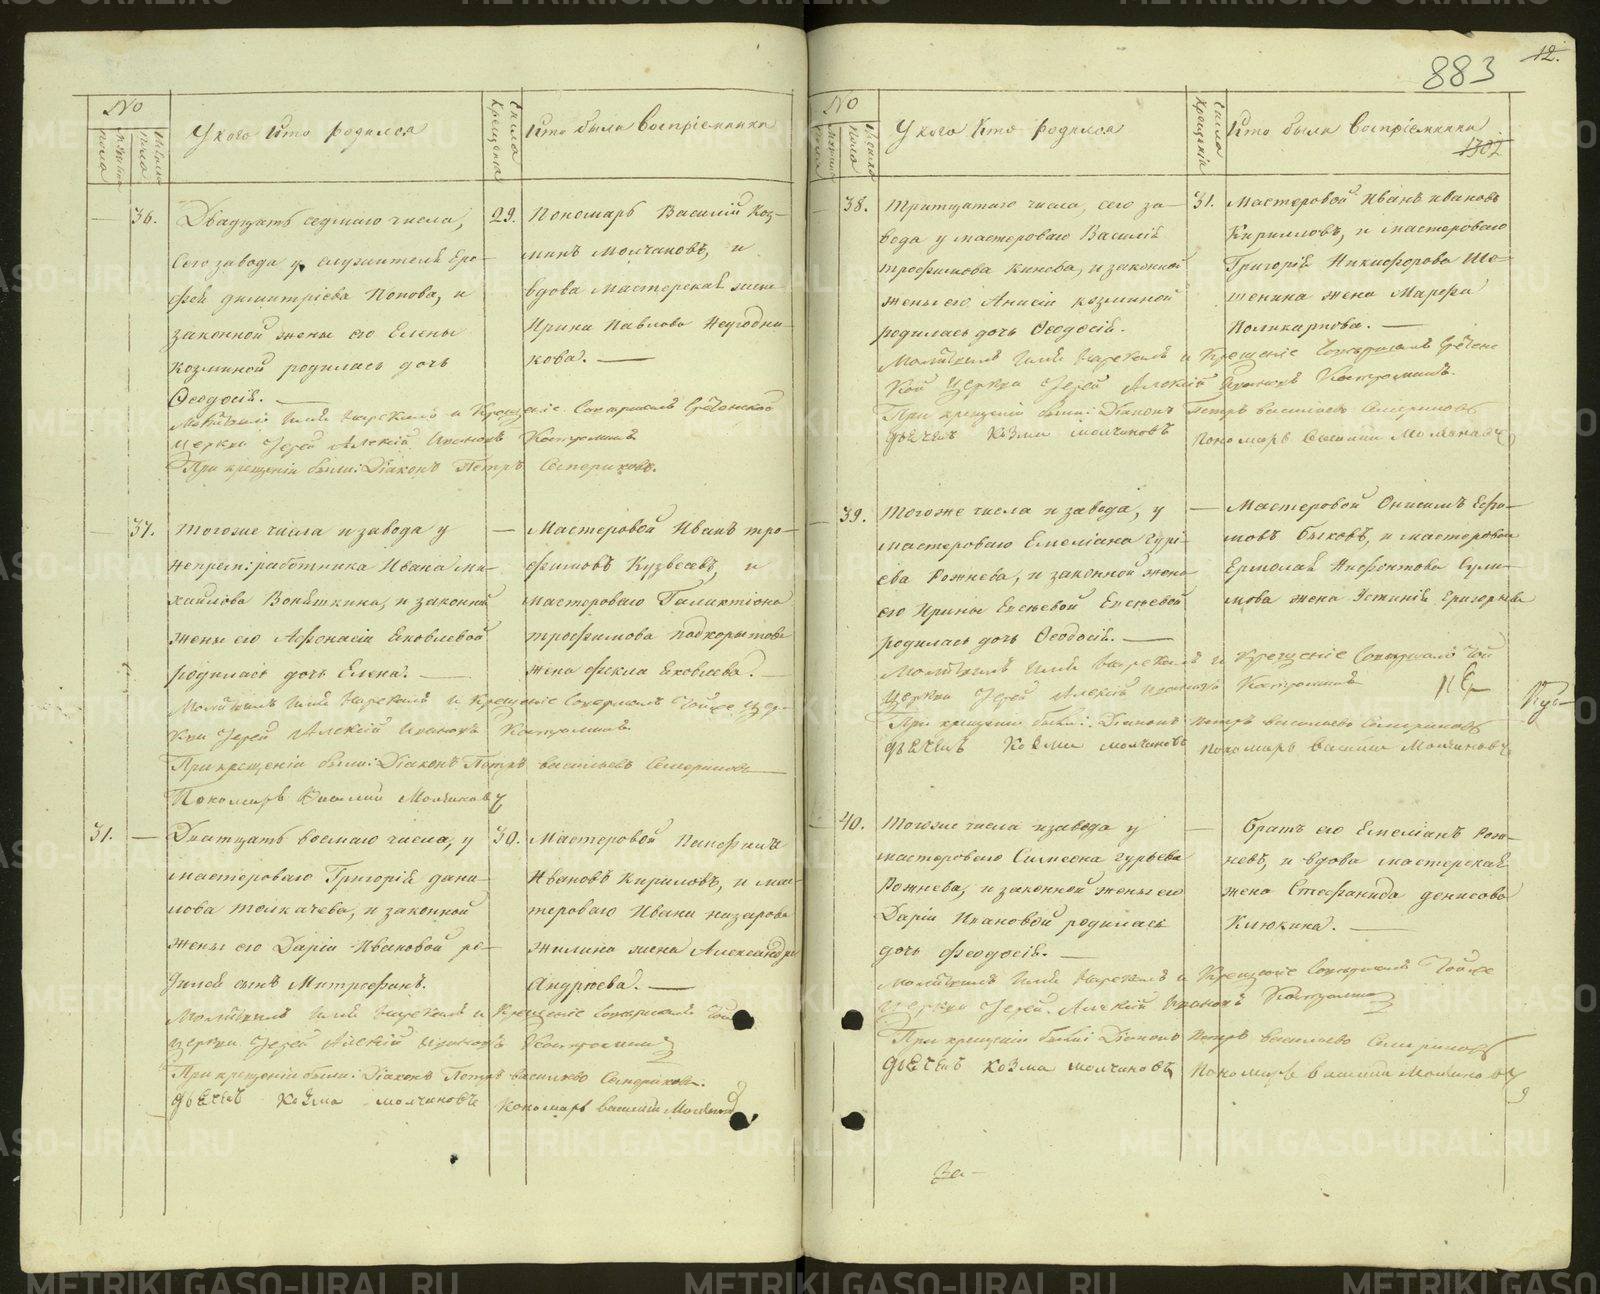 883
12.
1302
№
мужеска пола
женска пола
У кого кто родился
Числа крещенія
Кто были воспріемники
36.
Двадцать седмаго числа,
сего завода у служителя Еро-
фея Димитріева Попова, и
законной жены его Елены
Козминой родилась дочь
Ѳеодосія.
29.
Пономарь Василій Коз-
минъ Молчановъ, и
вдова мастерская жена
Ирина Павлова Неугодни-
кова.
имя нарекалъ и крещеніе совершалъ Срѣтенской
церкви Іерей Алексій Иванов Костромин
При крещеніи были: Діаконъ Петръ Семериковъ.
37.
тогоже числа и завода у
непрем: работника Ивана Ми-
хайлова Вонѣткина, и законной
жены его Афонасіи Яковлевой
родилась дочь Елена.
Мастеровой Иванъ Тро-
фимовъ Кузвеевъ, и
мастероваго Галактіона
трофимова Подкорытова
жена Фекла Яковлева.
имя нарекалъ и крещеніе совершалъ тойже цер-
кви Іерей Алексій Костромин
При крещеніи были: Діаконъ Петръ Васильевъ Семериковъ
Пономарь Василій Молчановъ
31.
Дватцать восмаго числа, у
мастероваго Григорія Дани-
лова Толкачева, и законной
жены его Даріи Ивановой ро-
дился сынъ Митрофанъ.
30.
Мастеровой Панфилъ
Ивановъ Кириловъ, и мас-
тероваго Ивана Назарова
Жилина жена Александра
Андреева.
имя нарекалъ и крещеніе совершалъ той
церкви Іерей Алексій Костромин
При крещеніи были: Діаконъ Петръ Васильево Семериковъ.
дьячекъ Козма Молчановъ Пономарь Василій Молчанов
№
мужеска пола
женска пола
У кого кто родился
Числа крещенія
Кто были воспріемники
38.
Тритцатаго числа, сего за-
вода у мастероваго Василія
трофимова Кинева, и законной
жены его Анисіи Козминой
родилась дочь Ѳеодосія.
31.
Мастеровой Иванъ Ивановъ
Кирилловъ, и мастероваго
Григорія Никифорова Шо-
шенина жена Марфа
Поликарпова.
имя нарекалъ и крещеніе совершалъ Срѣтенс
кой церкви Іерей Алексій Костромин.
При крещеніи были: Діаконъ Петръ Васильево Семериковъ
дьячекъ Козма Молчановъ Пономарь Василий Молчанов
39.
Тогоже числа и завода, у
мастероваго Емеліана Гурі-
ева Рожнева, и законной жены
его Ирины Евсѣевой Евсѣевой
родилась дочь Ѳеодосія.
Мастеровой Онисимъ Ефи-
мовъ Быковъ, и мастероваго
Ермолая Ниѳонтова Сули-
мова жена Устинія Григорьева
имя нарекалъ и крещеніе совершалъ той
церкви Іерей Алексій Костромин
При крещеніи были: Діаконъ Петръ Васильево Семериковъ
дьячекъ Козма Молчановъ Пономарь Василий Молчановъ
40.
Тогоже числа и завода у
мастероваго Симеона Гурьева
Рожнева, и законной жены его
Даріи Ивановой родилась
дочь Ѳеодосія.
Братъ его Емеліанъ Рож-
невъ, и вдова мастерская
жена Стефанида Денисова
Клюкина.
имя нарекалъ и крещеніе совершалъ тойже
церкви Іерей Алексій Костромин
При крещеніи были: Діаконъ Петръ Васильево Семериковъ
дьячекъ Козма Молчановъ Пономарь Василий Молчановъ
METRIKI.GASO-URAL.RU